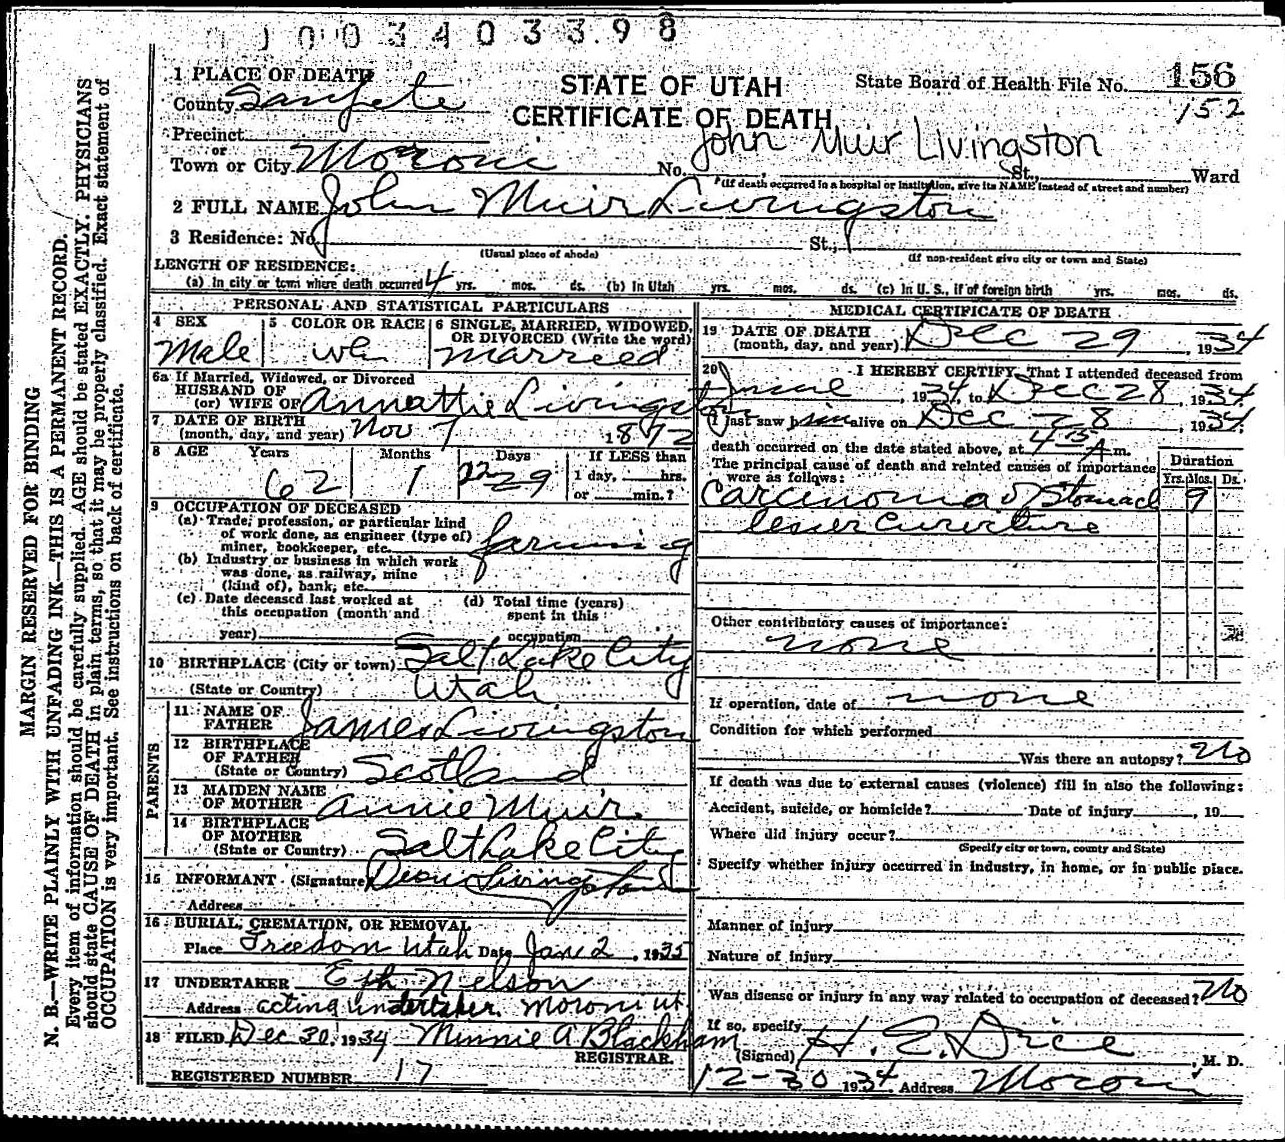 0 0 3 4 0 3 3 9 8
1 PLACE OF DEATH
County Sanpete
STATE OF UTAH
CERTIFICATE OF DEATH
State Board of Health File No. 156
152
Precinct
or
Town or City Moroni No. St., Ward
John Muir Livingston
(If death occurred in a hospital or institution, give its NAME instead of street and number)
2 FULL NAME John Muir Livingston
3 Residence: No. St.,
(Usual place of abode) (If non-resident give city or town and State)
LENGTH OF RESIDENCE:
(a) In city or town where death occurred 4 yrs. mos. ds. (b) In Utah yrs. mos. ds. (c) In U. S., if of foreign birth yrs. mos. ds.
PERSONAL AND STATISTICAL PARTICULARS
4 SEX Male
5 COLOR OR RACE wh
6 SINGLE, MARRIED, WIDOWED, OR DIVORCED (Write the word) married
6a If Married, Widowed, or Divorced
HUSBAND OF
(or) WIFE OF Annattie Livingston
7 DATE OF BIRTH
(month, day, and year) Nov 7 1872
8 AGE Years Months Days If LESS than
62 1 22 29 1 day, hrs.
or min.?
9 OCCUPATION OF DECEASED
(a) Trade, profession, or particular kind
of work done, as engineer (type of)
miner, bookkeeper, etc. farming
(b) Industry or business in which work
was done, as railway, mine
(kind of), bank, etc.
(c) Date deceased last worked at
this occupation (month and
year)
(d) Total time (years)
spent in this
occupation
10 BIRTHPLACE (City or town) Salt Lake City
(State or Country) Utah
PARENTS
11 NAME OF
FATHER James Livingston
12 BIRTHPLACE
OF FATHER
(State or Country) Scotland
13 MAIDEN NAME
OF MOTHER Annie Muir.
14 BIRTHPLACE
OF MOTHER
(State or Country) Salt Lake City
15 INFORMANT (Signature) Livingston
Address
16 BURIAL, CREMATION, OR REMOVAL
Place Freedom Utah Date Jan 2, 1935
17 UNDERTAKER Eph Nelson
Address acting undertaker. Moroni Ut.
18 FILED Dec 30, 1934 Minnie A Blackham
REGISTRAR.
REGISTERED NUMBER 17
MEDICAL CERTIFICATE OF DEATH
19 DATE OF DEATH
(month, day, and year) Dec 29, 1934
20 I HEREBY CERTIFY, That I attended deceased from
June, 1934, to Dec 28, 1934
I last saw him alive on Dec 28, 1934.
death occurred on the date stated above, at 4 15 A m.
The principal cause of death and related causes of importance
were as follows:
Duration
Yrs. Mos. Ds.
Carcinoma of Stomach 9
lesser curviture
Other contributory causes of importance:
none
If operation, date of none
Condition for which performed
Was there an autopsy? No
If death was due to external causes (violence) fill in also the following:
Accident, suicide, or homicide? Date of injury , 19
Where did injury occur?
(Specify city or town, county and State)
Specify whether injury occurred in industry, in home, or in public place.
Manner of injury
Nature of injury
Was disease or injury in any way related to occupation of deceased? No
If so, specify
(Signed) H. E. Dice, M. D.
12-30 1934 Address Moroni
MARGIN RESERVED FOR BINDING
N. B.—WRITE PLAINLY WITH UNFADING INK—THIS IS A PERMANENT RECORD.
Every item of information should be carefully supplied. AGE should be stated EXACTLY. PHYSICIANS
should state CAUSE OF DEATH in plain terms, so that it may be properly classified. Exact statement of
OCCUPATION is very important. See instructions on back of certificate.